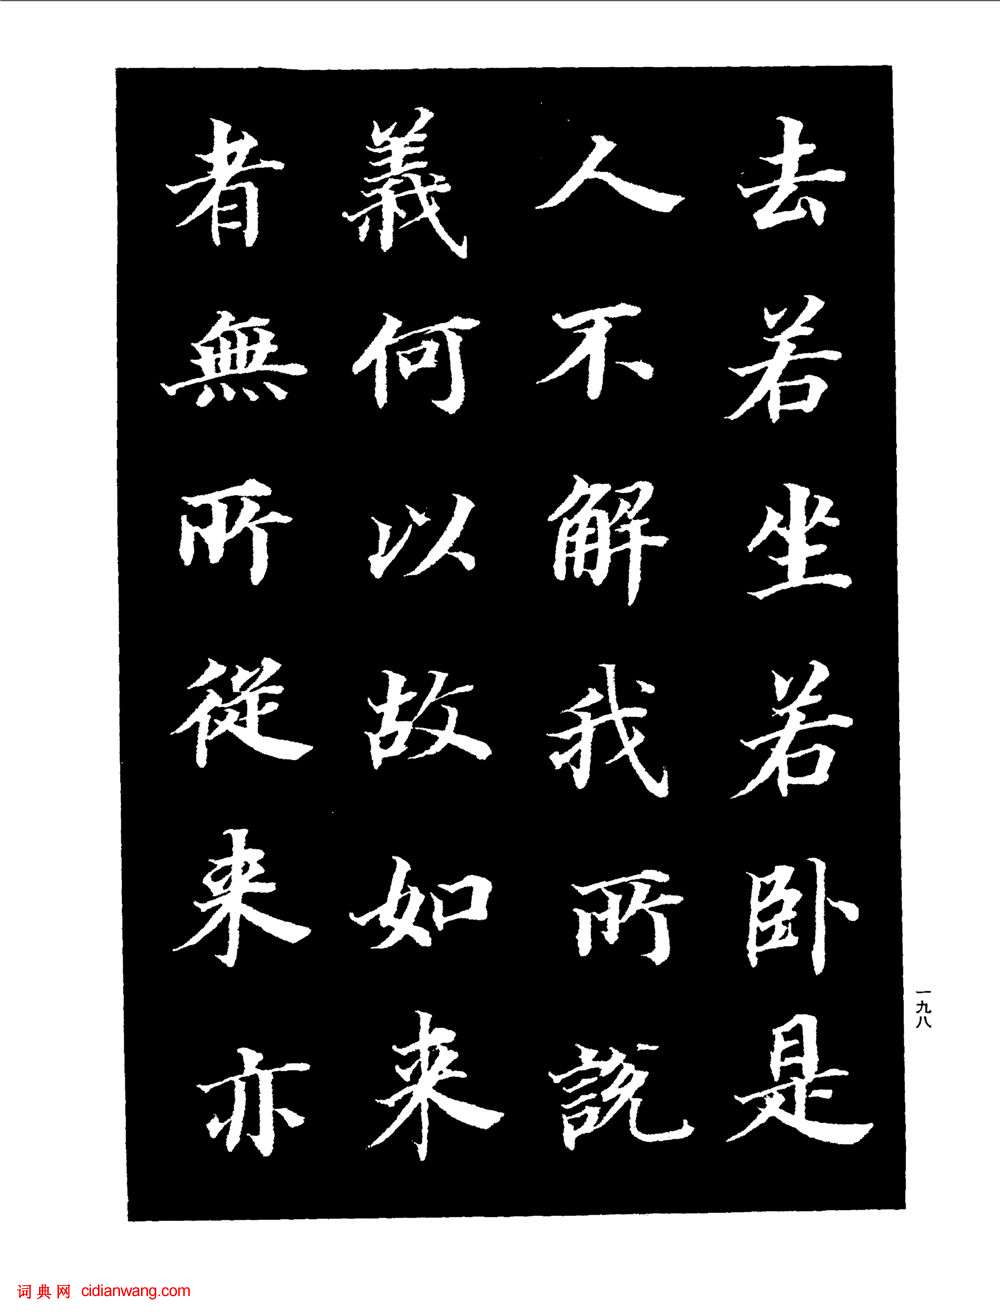 去若坐若卧是
人不解我所說
義何以故如来
者無所從来亦
一九八
词典网 cidianwang.com